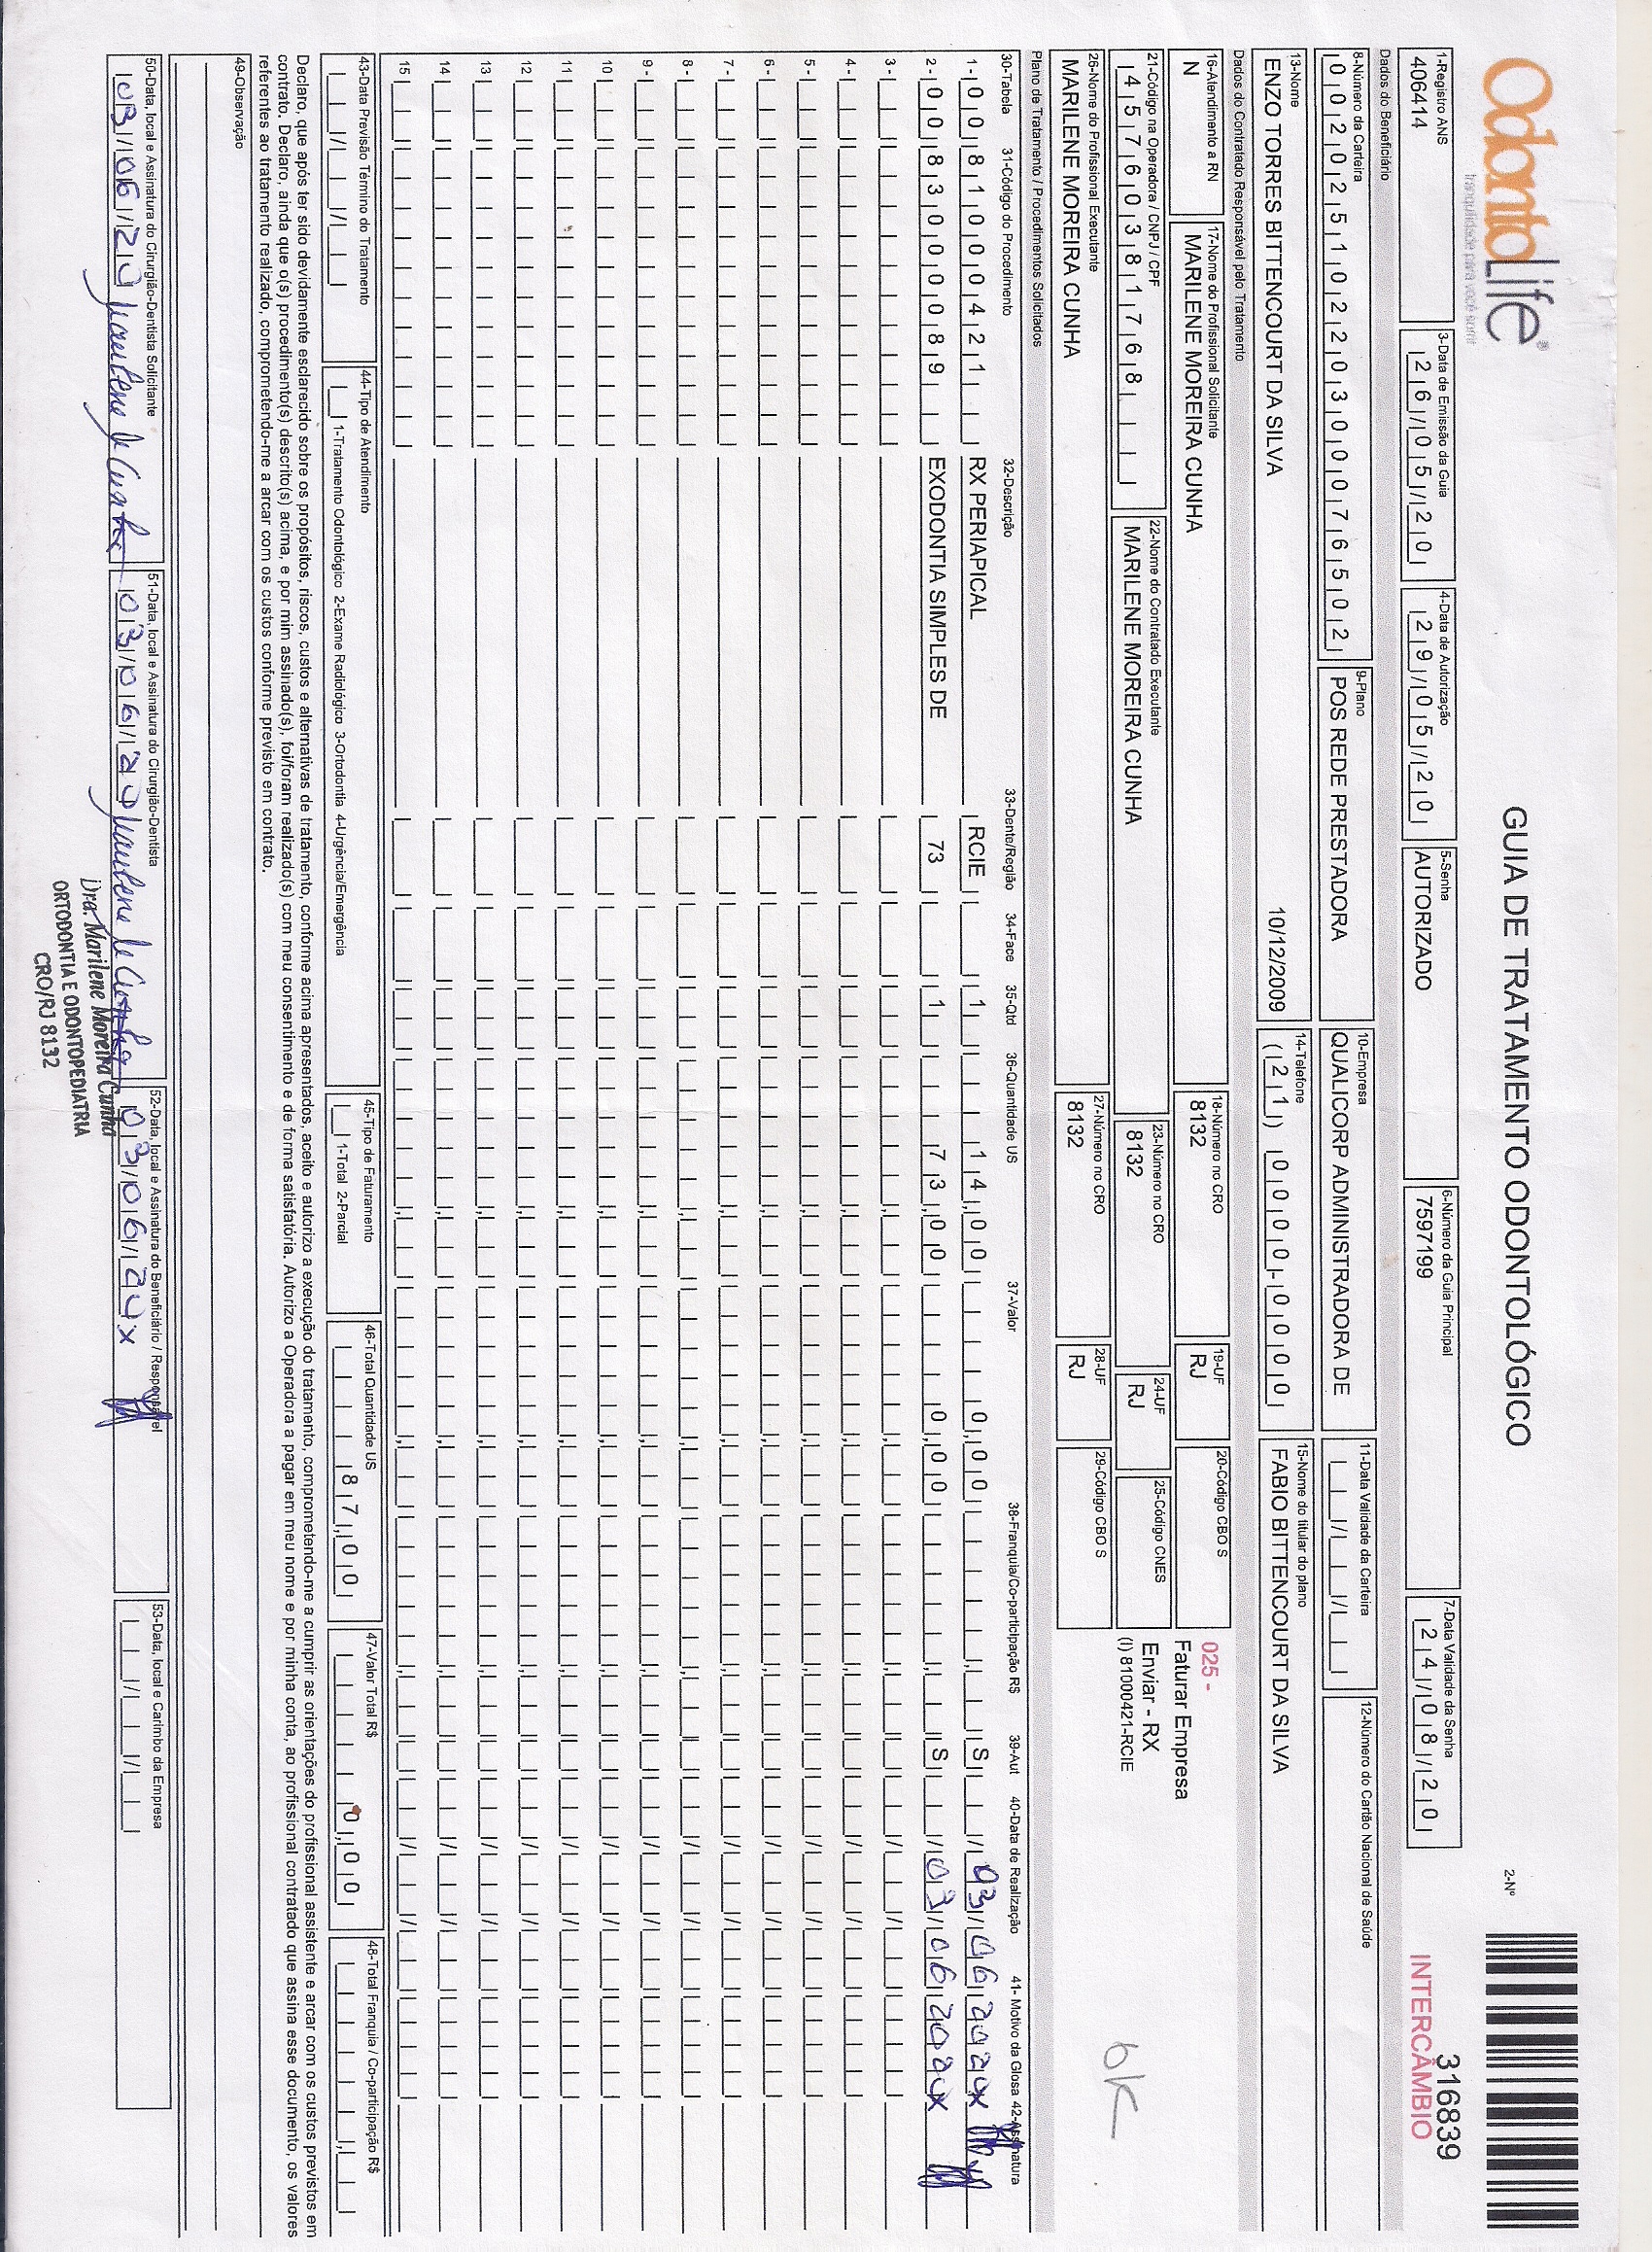 OdontoLife®
tranquilidade para você sorrir
GUIA DE TRATAMENTO ODONTOLÓGICO
2-Nº
316839
INTERCÂMBIO
1-Registro ANS
406414
3-Data de Emissão da Guia
26/05/20
4-Data de Autorização
29/05/20
5-Senha
AUTORIZADO
6-Número da Guia Principal
7597199
7-Data Validade da Senha
24/08/20
Dados do Beneficiário
8-Número da Carteira
00202510220300076502
9-Plano
POS REDE PRESTADORA
10-Empresa
QUALICORP ADMINISTRADORA DE
11-Data Validade da Carteira
12-Número do Cartão Nacional de Saúde
13-Nome
ENZO TORRES BITTENCOURT DA SILVA 10/12/2009
14-Telefone
(21) 0000-0000
15-Nome do titular do plano
FABIO BITTENCOURT DA SILVA
Dados do Contratado Responsável pelo Tratamento
16-Atendimento a RN
N
17-Nome do Profissional Solicitante
MARILENE MOREIRA CUNHA
18-Número no CRO
8132
19-UF
RJ
20-Código CBO S
025 -
Faturar Empresa
Enviar - RX
(I) 81000421-RCIE
21-Código na Operadora / CNPJ / CPF
45760381768
22-Nome do Contratado Executante
MARILENE MOREIRA CUNHA
23-Número no CRO
8132
24-UF
RJ
25-Código CNES
26-Nome do Profissional Executante
MARILENE MOREIRA CUNHA
27-Número no CRO
8132
28-UF
RJ
29-Código CBO S
ok
Plano de Tratamento / Procedimentos Solicitados
30-Tabela 31-Código do Procedimento 32-Descrição 33-Dente/Região 34-Face 35-Qtd 36-Quantidade US 37-Valor 38-Franquia/Co-participação R$ 39-Aut 40-Data de Realização 41- Motivo da Glosa 42-Assinatura
1- 00 81000421 RX PERIAPICAL RCIE 1 14,00 0,00 S 03/06/2020 x
2- 00 83000089 EXODONTIA SIMPLES DE 73 1 73,00 0,00 S 03/06/2020 x
3 -
4 -
5 -
6 -
7 -
8 -
9 -
10
11
12
13
14
15
43-Data Previsão Término do Tratamento
44-Tipo de Atendimento
1-Tratamento Odontológico 2-Exame Radiológico 3-Ortodontia 4-Urgência/Emergência
45-Tipo de Faturamento
1-Total 2-Parcial
46-Total Quantidade US
87,00
47-Valor Total R$
0,00
48-Total Franquia / Co-participação R$
Declaro, que após ter sido devidamente esclarecido sobre os propósitos, riscos, custos e alternativas de tratamento, conforme acima apresentados, aceito e autorizo a execução do tratamento, comprometendo-me a cumprir as orientações do profissional assistente e arcar com os custos previstos em
contrato. Declaro, ainda que o(s) procedimento(s) descrito(s) acima, e por mim assinado(s), foi/foram realizado(s) com meu consentimento e de forma satisfatória. Autorizo a Operadora a pagar em meu nome e por minha conta, ao profissional contratado que assina esse documento, os valores
referentes ao tratamento realizado, comprometendo-me a arcar com os custos conforme previsto em contrato.
49-Observação
50-Data, local e Assinatura do Cirurgião-Dentista Solicitante
03/06/20 Marilene M Cunha
51-Data, local e Assinatura do Cirurgião-Dentista
03/06/20 Marilene M Cunha
52-Data, local e Assinatura do Beneficiário / Responsável
03/06/20 x
53-Data, local e Carimbo da Empresa
Dra. Marilene Moreira Cunha
ORTODONTIA E ODONTOPEDIATRIA
CRO/RJ 8132